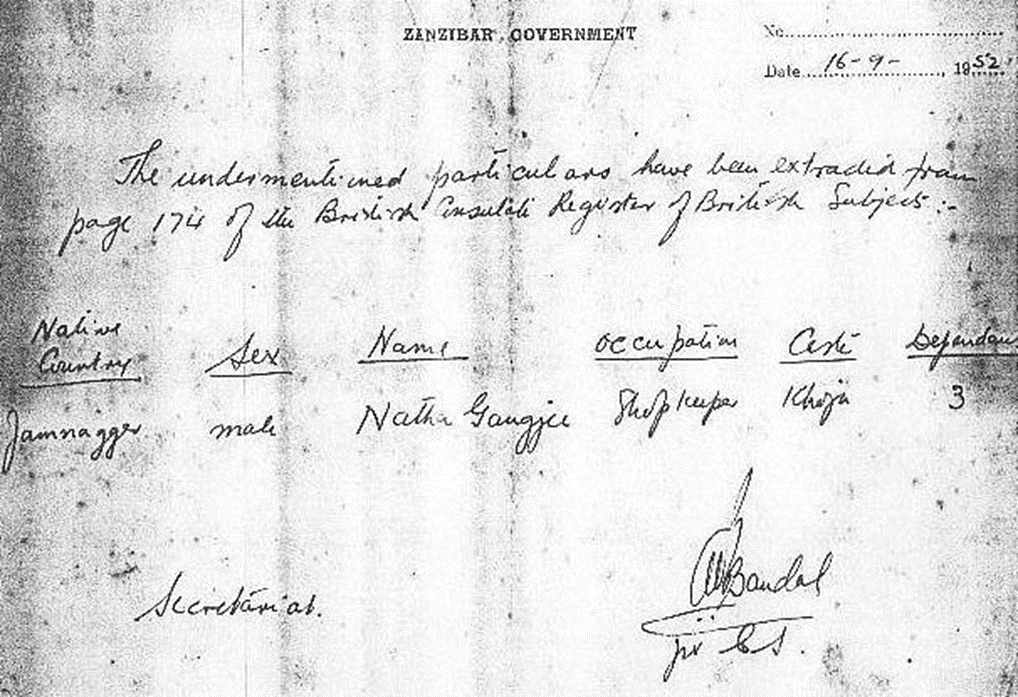 ZANZIBAR GOVERNMENT
No.
Date 16-9- , 1952
The undermentioned particulars have been extracted from
page 174 of the British Consulate Register of British Subjects :-
Native Country Sex Name Occupation Caste Dependan
Jamnagger male Natha Gangjee Shopkeeper Khoja 3
Secretariat.
for C S.